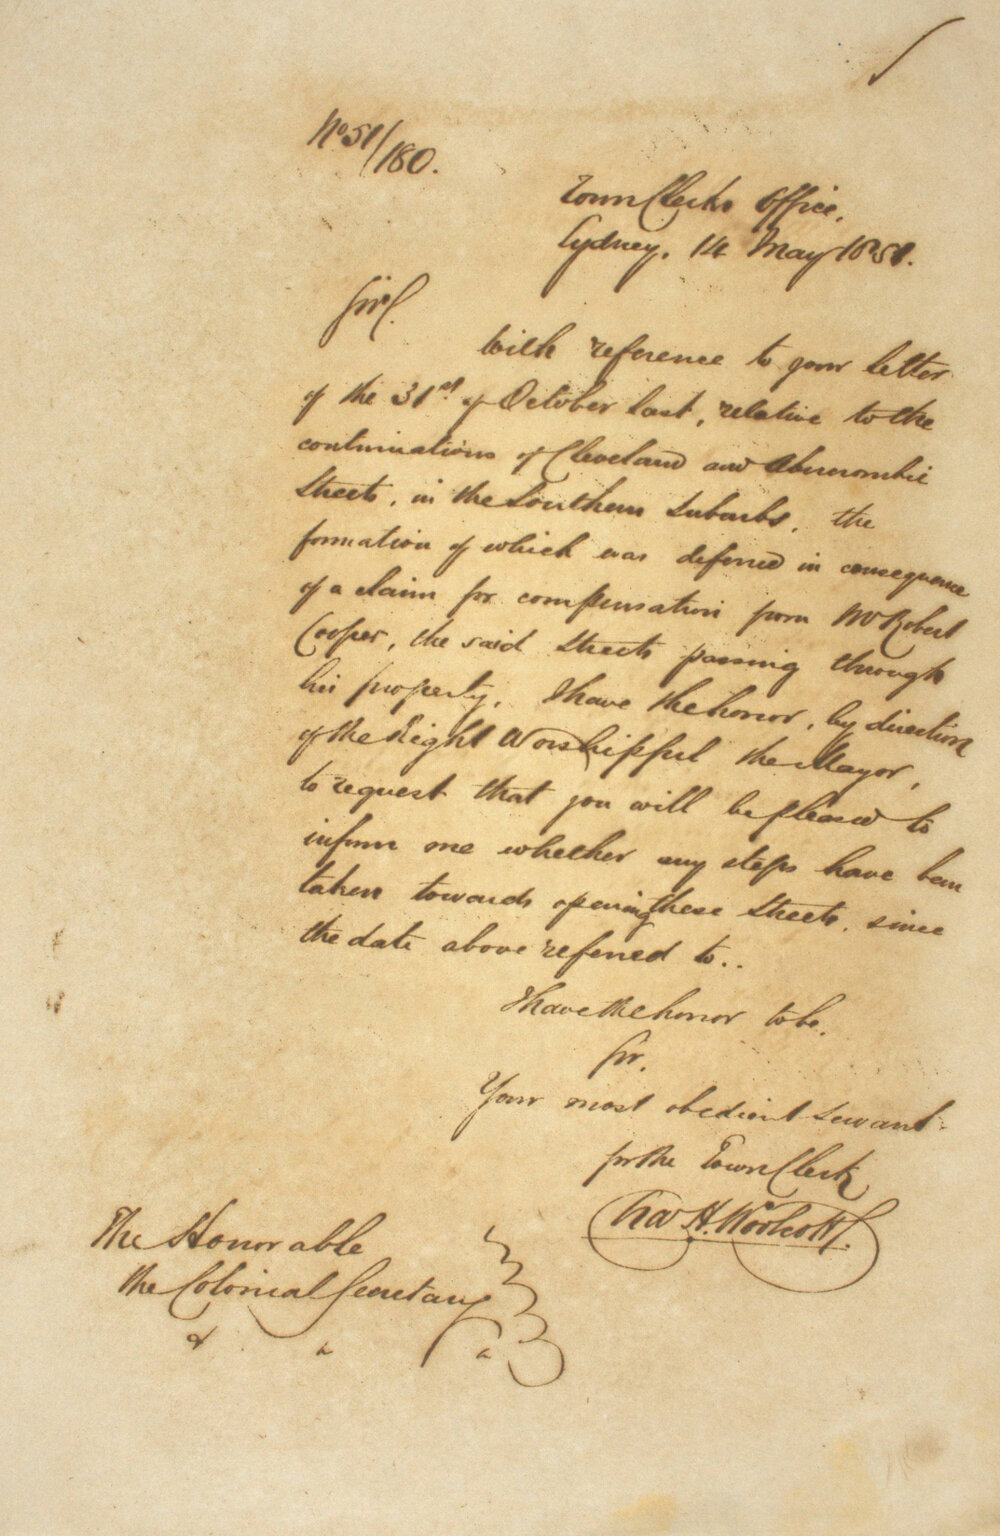 No 51/180.
Town Clerks Office,
Sydney, 14 May 1851.
Sir,
With reference to your letter
of the 31st of October last, relative to the
continuations of Cleveland and Abercrombie
Streets, in the Southern Suburbs, the
formation of which was deferred in consequence
of a claim for compensation from Mr Robert
Cooper, the said Streets passing through
his property, I have the honor, by direction
of the Right Worshipful the Mayor,
to request that you will be pleased to
inform me whether any steps have been
taken towards opening these Streets, since
the date above referred to..
I have the honor to be,
Sir,
Your most obedient servant
for the Town Clerk
Chas H. Woolcott.
The Honorable
the Colonial Secretary